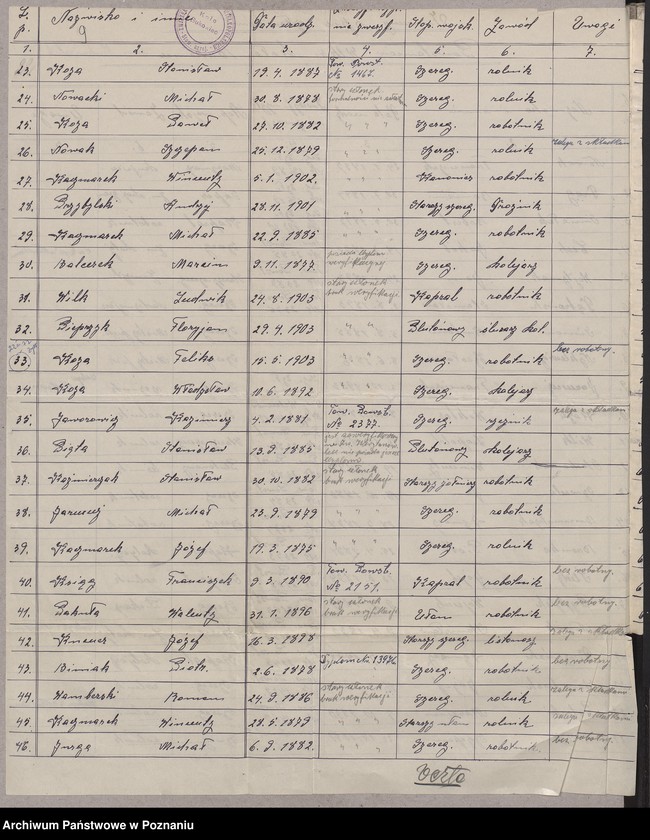 L. p. Nazwisko i imię Data urodz. nr zweryf. Stop. wojsk. Zawód Uwagi
9
1. 2. 3. 4. 5. 6. 7.
23. Koza Stanisław 19.4.1887 Tow. Powst. № 1467. Szereg. rolnik
24. Nowacki Michał 30.8.1878 stary członek Szereg. rolnik
25. Koza Paweł 27.10.1882 " " " Szereg. robotnik
26. Nowak Szczepan 25.12.1879 " " " Szereg. rolnik zalega z składkami
27. Kaczmarek Wincenty 5.1.1902. " " " Kanonier robotnik
28. Przybylski Andrzej 28.11.1901 " " " Starszy szereg. Woźnik
29. Kaczmarek Michał 22.9.1885 " " " Szereg. robotnik
30. Balcerek Marcin 9.11.1877. Szereg. kolejarz
31. Wilk Ludwik 24.8.1903 stary członek brak weryfikacji Kapral robotnik
32. Pieprzyk Florjan 29.4.1903 " " Plutonowy ślusarz kol.
33. Koza Feliks 15.5.1903 " " Szereg. robotnik bez robotny.
34. Koza Władysław 10.6.1892 " " Szereg. kolejarz
35. Jaworowicz Kazimierz 4.2.1881. Tow. Powst. № 2377. Szereg. zalega z składkami
36. Stanisław 13.9.1885 Plutonowy kolejarz
37. Kaźmierczak Stanisław 30.10.1882 stary członek brak weryfikacji Starszy żołnierz robotnik
38. Michał 23.9.1879 " " Szereg. robotnik
39. Kaczmarek Józef 19.3.1875 " " Szereg. rolnik
40. Ksiąg Franciszek 9.3.1890 Tow. Powst. № 2151. Kapral robotnik bez robotny.
41. Walenty 31.1.1896 stary członek brak weryfikacji Ułan robotnik bez robotny.
42. Józef 16.3.1898 " " Starszy szereg. listonosz zalega z składkami
43. Biniak Piotr 2.6.1878 Szereg. robotnik bez robotny
44. Hamberski Roman 24.9.1886 stary członek brak weryfikacji Szereg. rolnik zalega z składkami
45. Kaczmarek Wincenty 28.5.1879 " " " Starszy ułan rolnik zalega z składkami
46. Jurga Michał 6.9.1882. " " " Szereg. robotnik. bez robotny.
Verte
Archiwum Państwowe w Poznaniu